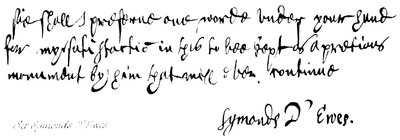 sie shall I preserue one worde under your hand
for my satisfactio in this to bee kept as a pretious
monument by him that will ever continue
Symonds D'Ewes.
Sir Symonds D'Ewes.